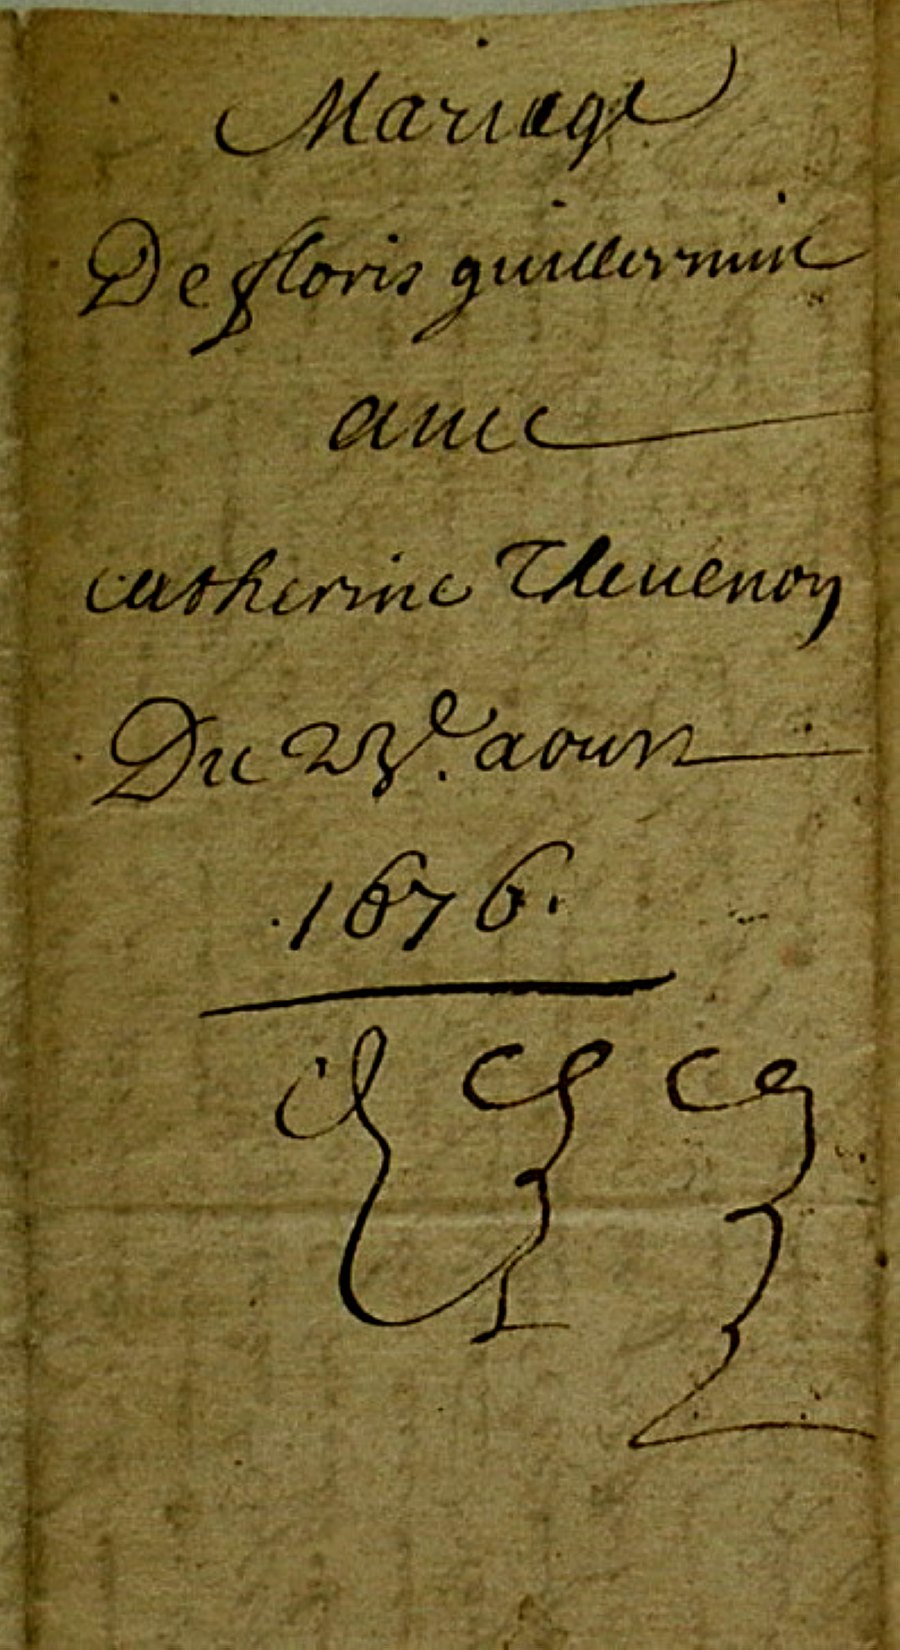 Mariage
De floris guillermin
auec
catherine Theuenon
Du 23e. aoust
1676.